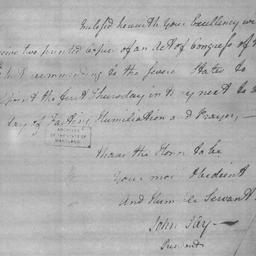 Inclosed herewith Your Excellency will
two printed copies of an Act of Congress of the
recommending to the several States to
the first Thursday in May next to be
day of Fasting Humiliation and Prayer, —
ARCHIVES
OF THE STATE OF
MARYLAND
I have the Honor to be
Your most Obedient
And Humble Servant
John Jay —
President